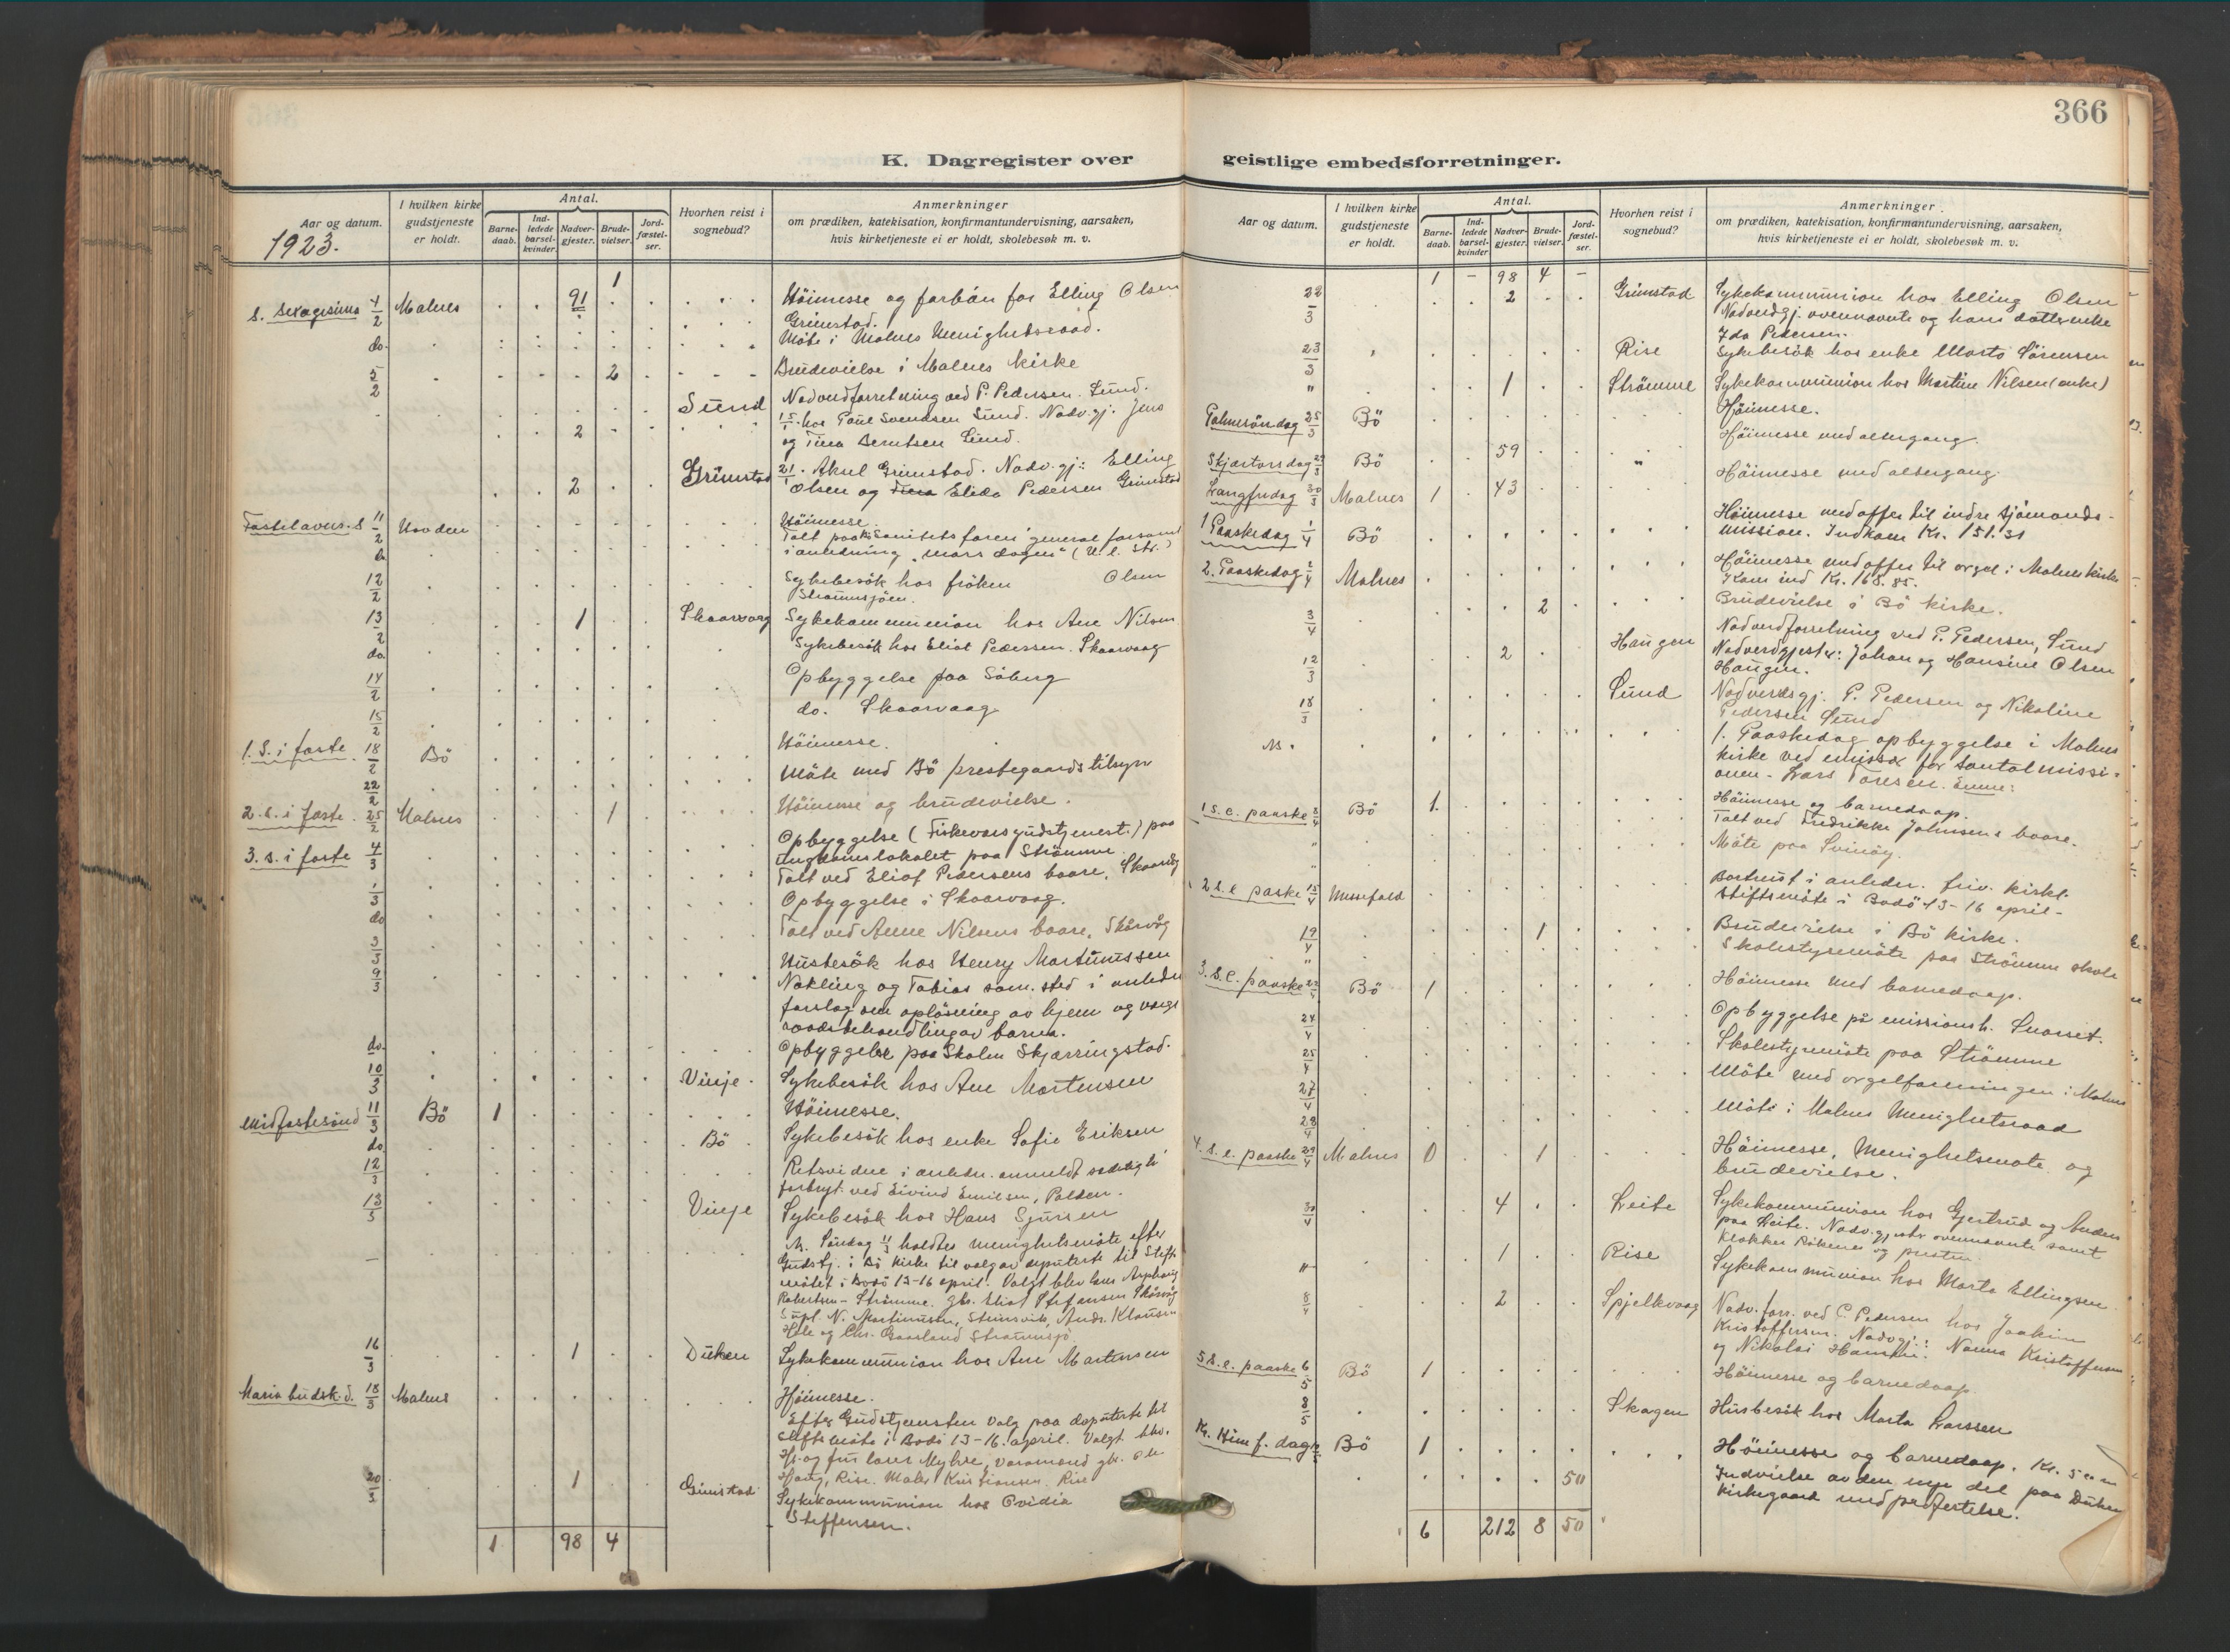 366
K. Dagregister over geistlige embedsforretninger.
Aar og datum.
1923.
I hvilken kirke gudstjeneste er holdt.
Antal.
Barne-daab.
Ind-ledede barsel-kvinder.
Nadver-gjester.
Brude-vielser.
Jord-fæstel-ser.
Hvorhen reist i sognebud?
Anmerkninger
om prædiken, katekisation, konfirmantundervisning, aarsaken,
hvis kirketjeneste ei er holdt, skolebesøk m. v.
1
S. Sexagesima 4/2 Malnes 91 Höimesse og forbön for Elling Olsen
Grimstad.
do. Möte i Malnes Menighetsraad.
5/2 2 Brudevielse i Malnes kirke
Sund Nadverdforretning ved P. Pedersen. Sund.
15/1 hos Poul Svendsen Sund. Nadv.gj. Jens
2 og Tina Berntsen Sund.
Grimstad 21/1 Aksel Grimstad. Nadv.gj: Elling
2 Olsen og Elida Pedersen Grimstad
Fastelavns. S 11/2 Hovden Höimesse.
do Talt paa Sanitetsforen general forsaml
i anledning "mars dagen"
12/2 Sykebesök hos fröken Olsen
Straumsjöen.
13/2 1 Skaarvaag Sykekommunion hos Ane Nilsen
do. Sykebesök hos Eliot Pedersen. Skaarvaag
14/2 Opbyggelse paa Söberg
15/2 do. Skaarvaag
1. S. i faste 18/2 Bö Höimesse.
22/2 Möte med Bö prestegaards tilsyn
2. S. i faste 25/2 Malnes 1 Höimesse og brudevielse.
3. S. i faste 4/3 Opbyggelse (Fiskeværsgudstjenest.) paa
ungdomslokalet paa Strömme
1/3 Talt ved Eliot Pedersens baare, Skaarvåg
do Opbyggelse i Skaarvaag.
3/3 Talt ved Anne Nilsens baare, Skårvåg
9/3 Husbesök hos Henry Martinussen
Nökling og Tobias sam. sted i anledn
forslag om oplösning av hjem og verge
raadsbehandling av barna.
do. Opbyggelse paa Skolen Skjærringstad.
10/3 Vinje. Sykebesök hos Ane Mortensen
Midfastesönd 11/3 Bö 1 Höimesse.
do Bö. Sykebesök hos enke Sofie Eriksen
12/3 Retsvidne i anledn. anmeldt sedeligh.
forbryt. ved Eivind Emilsen, Polden.
13/3 Vinje Sykebesök hos Hans Sjursen
N. Söndag 11/3 holdtes menighetsmöte efter
Gudstj. i Bö kirke til valg av deputerte til Stifts
mötet i Bodö 13-16 april. Valgt blev
Robertsen - Strömme. gbr. Eliot Steffensen Skårvåg
Supl. N. Martinussen, Steinsvik, Andr. Klausen
Hole og Chr. Gaarland Straumsjö.
16/3 1 Duken Sykekommunion hos Ane Martinsen
Maria budsk. d. 18/3 Malnes Höimesse.
Efter Gudstjenesten valg paa deputerte til
Stiftsmöte i Bodö 13-16. april. Valgt blev.
Myhre, varamænd gbr.
Haug, Rise. Maler Kristiansen. Rise
20/3 1 Grimstad Sykekommunion hos Ovidia
Steffensen.
1 98 4
Aar og datum.
I hvilken kirke gudstjeneste er holdt.
Antal.
Barne-daab.
Ind-ledede barsel-kvinder.
Nadver-gjester.
Brude-vielser.
Jord-fæstel-ser.
Hvorhen reist i sognebud?
Anmerkninger
om prædiken, katekisation, konfirmantundervisning, aarsaken,
hvis kirketjeneste ei er holdt, skolebesøk m. v.
1 - 98 4 -
22/3 2 Grimstad Sykekommunion hos Elling Olsen
Nadverdgj. ovennævnte og hans datter enke
Ida Pedersen.
23/3 Rise Sykebesök hos enke Marta Sörensen
" 1 Strömme Sykekommunion hos Martine Nilsen (enke)
Palmesöndag 25/3 Bö Höimesse.
Skjærtorsdag 29/3 Bö 59 Höimesse med altergang.
Langfredag 30/3 Malnes 1 43 Höimesse med altergang.
1 Paaskedag 1/4 Bö Höimesse med offer til indre sjömands-
mission. Indkom Kr. 151.31
2. Paaskedag 2/4 Malnes Höimesse med offer til orgel i Malnes kirke
Kom ind Kr. 168.85.
3/4 2 Brudevielse i Bö kirke.
12/3 2 Haugen Nadverdforretning ved P. Pedersen, Sund
Nadverdgjester: Johan og Hansine Olsen
Haugen.
18/3 Sund Nadverdsgj. P. Pedersen og Nikoline
Pedersen Sund
N. 1. Paaskedag opbyggelse i Malnes
kirke ved emissær for Santalmissi-
onen. Lars Toresen.
1 S. e. paaske 8/4 Bö 1. Höimesse og barnedaap.
" Talt ved Fredrikke Johnsens baare.
" Möte paa Svinöy.
2 S. e. paske 15/4 Messefald Bortreist i anledn. friv. kirkl.
Stiftsmöte i Bodö 13-16 april-
19/4 1 Brudevielse i Bö kirke.
" Skolestyremöte paa Strömme skole
3. S. e. paaske 22/4 Bö 1 Höimesse med barnedaap.
24/4 Opbyggelse på missionsh. Guvaset.
25/4 Skolestyremöte paa Strömme
27/4 Möte med orgelforeningen i Malnes
28/4 Möte i Malnes Menighetsraad
4. S. e. paaske 29/4 Malnes 0 1 Höimesse, Menighetsmöte og
brudevielse.
30/4 4 Leite Sykekommunion hos Gjertrud og Anders
paa Leite. Nadv.gjester ovennævnte samt
Klokker Rökenes og presten.
" 1 Rise Sykekommunion hos Marta Ellingsen
8/4 2 Spjelkvaag Nadv. forr. ved P. Pedersen hos Joakim
Kristoffersen. Nadvgj: Nanna Kristoffersen
og Nikolai Hansen.
5 S. e. paaske 6/5 Bö 1 Höimesse og barnedaap.
8/5 Skagen Husbesök hos Marta Larssen
Kr. Himf. dag Bö 1 Höimesse og barnedaap.
50 Indvielse av den nye del paa Duken
kirkegaard med jordfestelse.
6 212 8 50